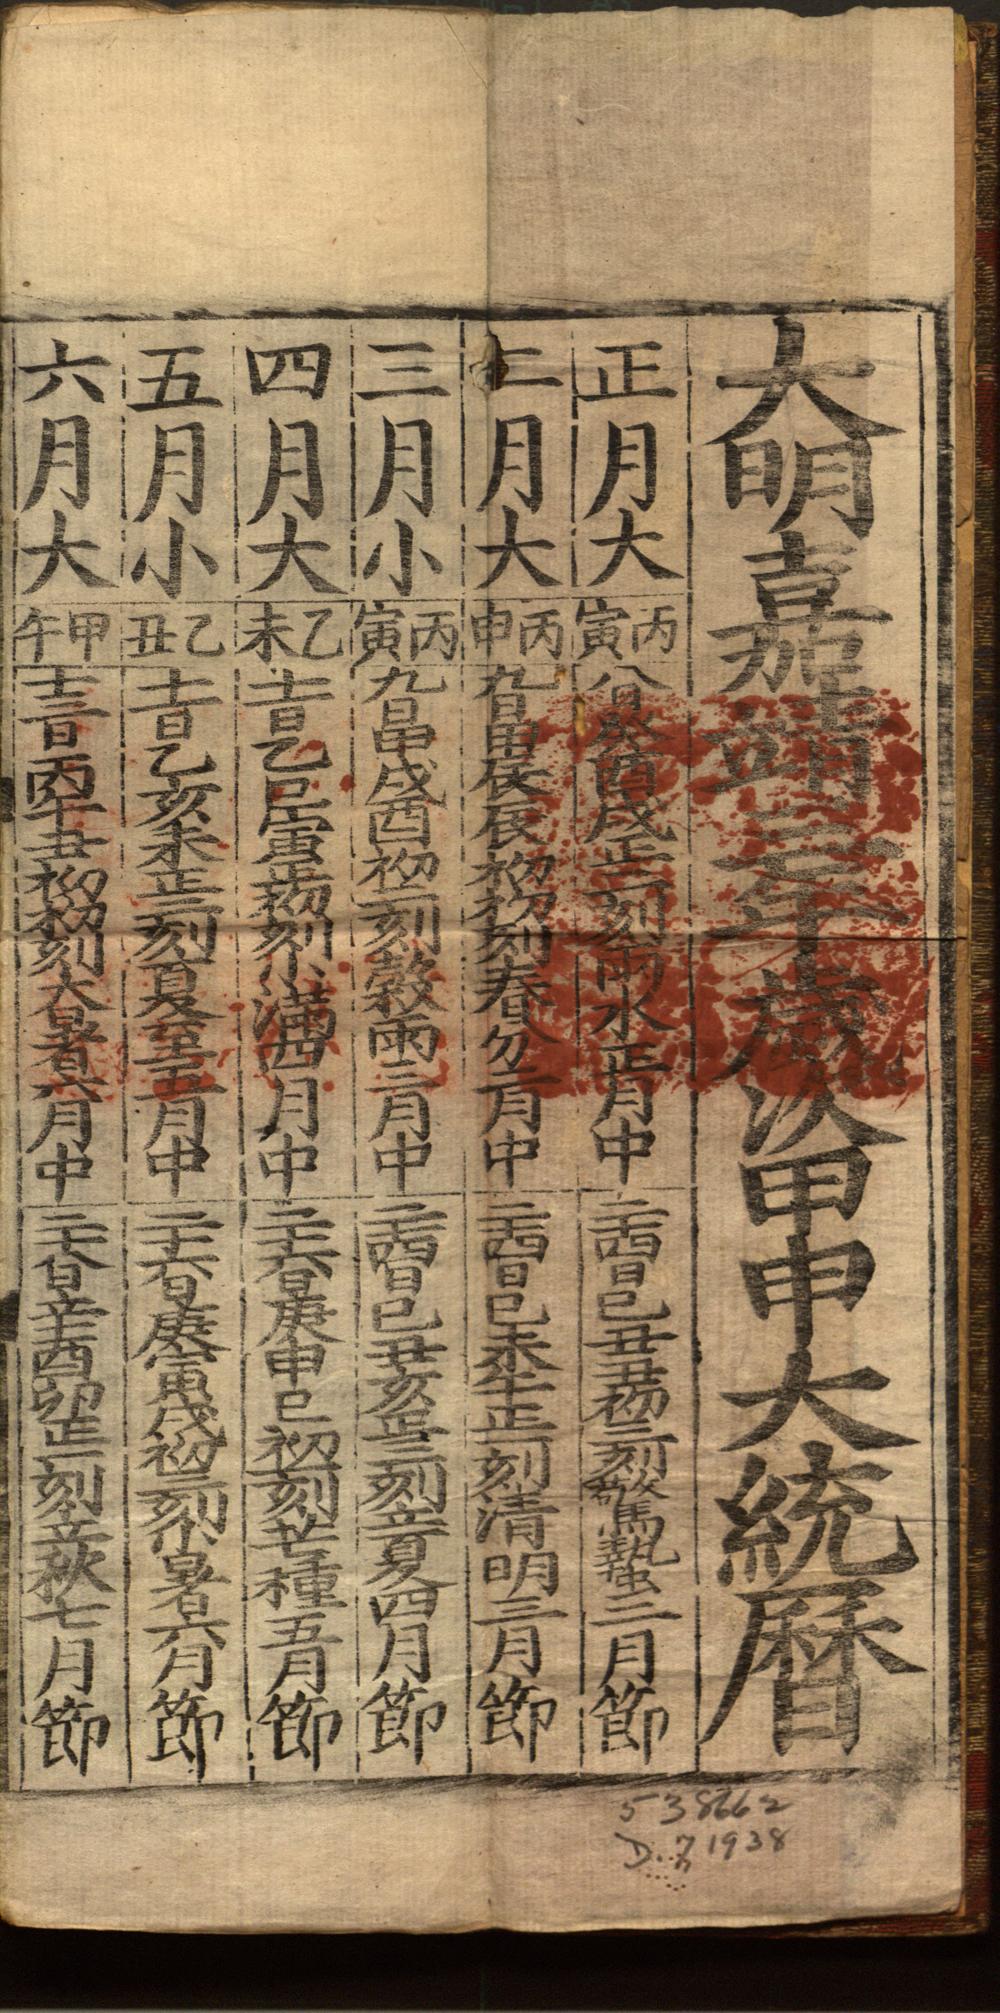 大明嘉靖三年歲次甲申大統暦
正月大 丙寅 八日癸酉戌正二刻雨水正月中 二十四日己丑丑初三刻驚蟄二月節
二月大 丙申 九日甲辰辰初初刻春分二月中 二十四日己未午正一刻清明三月節
三月小 丙寅 九日甲戌酉初二刻穀雨三月中 二十四日己丑亥正三刻立夏四月節
四月大 乙未 十一日乙巳寅正初刻小滿四月中 二十六日庚申巳初一刻芒種五月節
五月小 乙丑 十一日乙亥未正二刻夏至五月中 二十六日庚寅戌初三刻小暑六月節
六月大 甲午 十三日丙午丑初初刻大暑六月中 二十八日辛酉卯正一刻立秋七月節
538662
D.7 1938